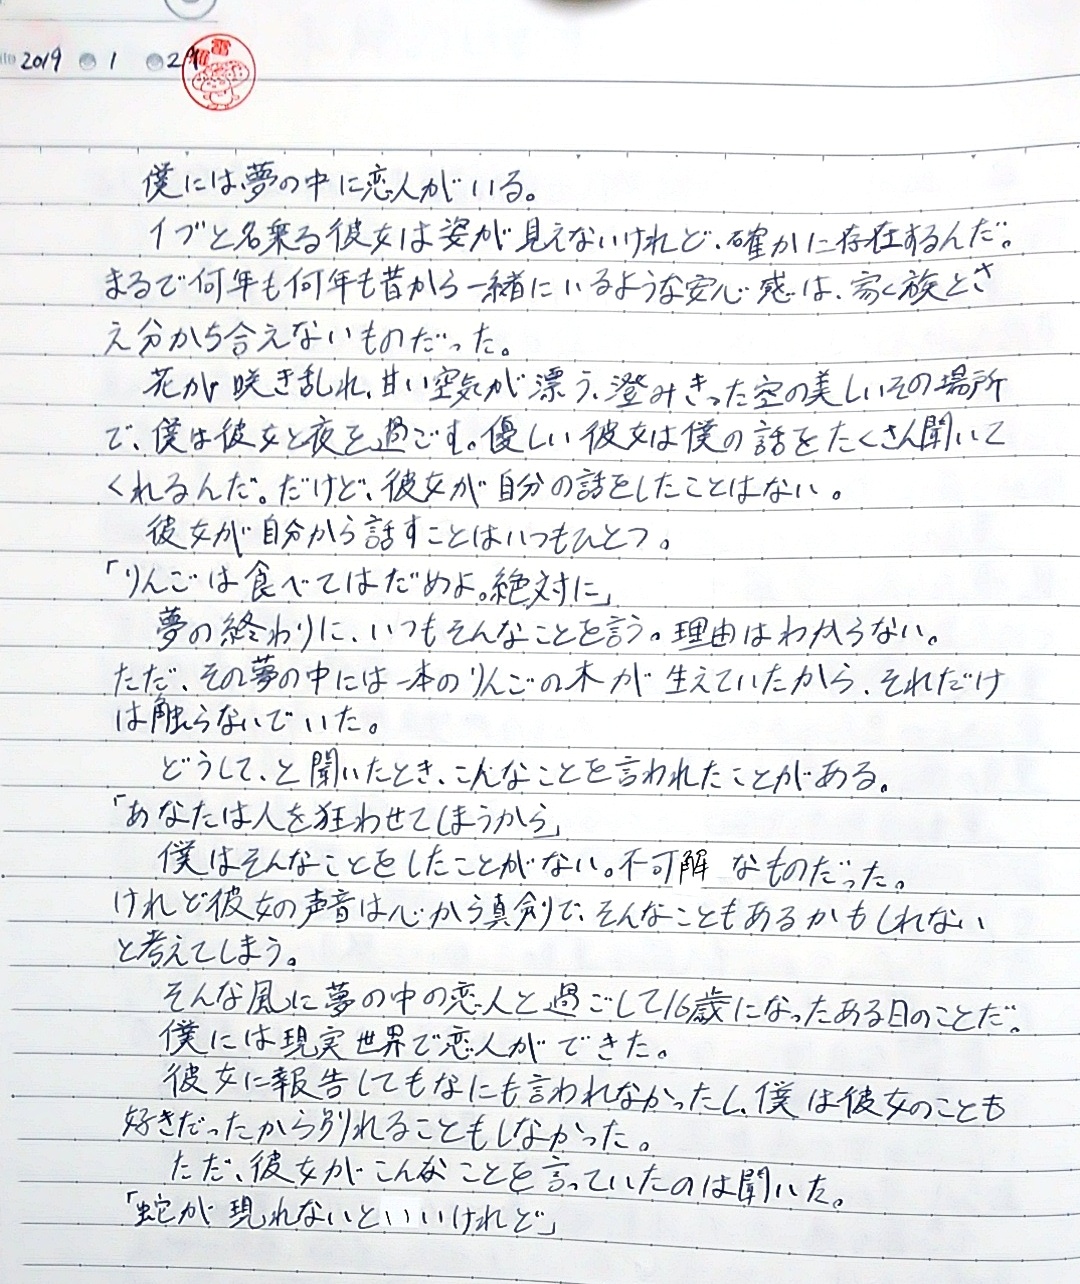 2019 1 29
僕には夢の中に恋人がいる。
イブと名乗る彼女は姿が見えないけれど、確かに存在するんだ。
まるで何年も何年も昔から一緒にいるような安心感は、家族とさ
え分かち合えないものだった。
花が咲き乱れ、甘い空気が漂う、澄みきった空の美しいその場所
で、僕は彼女と夜を過ごす。優しい彼女は僕の話をたくさん聞いて
くれるんだ。だけど、彼女が自分の話をしたことはない。
彼女が自分から話すことはいつもひとつ。
「りんごは食べてはだめよ。絶対に」
夢の終わりに、いつもそんなことを言う。理由はわからない。
ただ、その夢の中には一本のりんごの木が生えていたから、それだけ
は触らないでいた。
どうして、と聞いたとき、こんなことを言われたことがある。
「あなたは人を狂わせてしまうから」
僕はそんなことをしたことがない。不可解なものだった。
けれど彼女の声音は心から真剣で、そんなこともあるかもしれない
と考えてしまう。
そんな風に夢の中の恋人と過ごして16歳になったある日のことだ。
僕には現実世界で恋人ができた。
彼女に報告してもなにも言われなかったし、僕は彼女のことも
好きだったから別れることもしなかった。
ただ、彼女がこんなことを言っていたのは聞いた。
「蛇が現れないといいけれど」